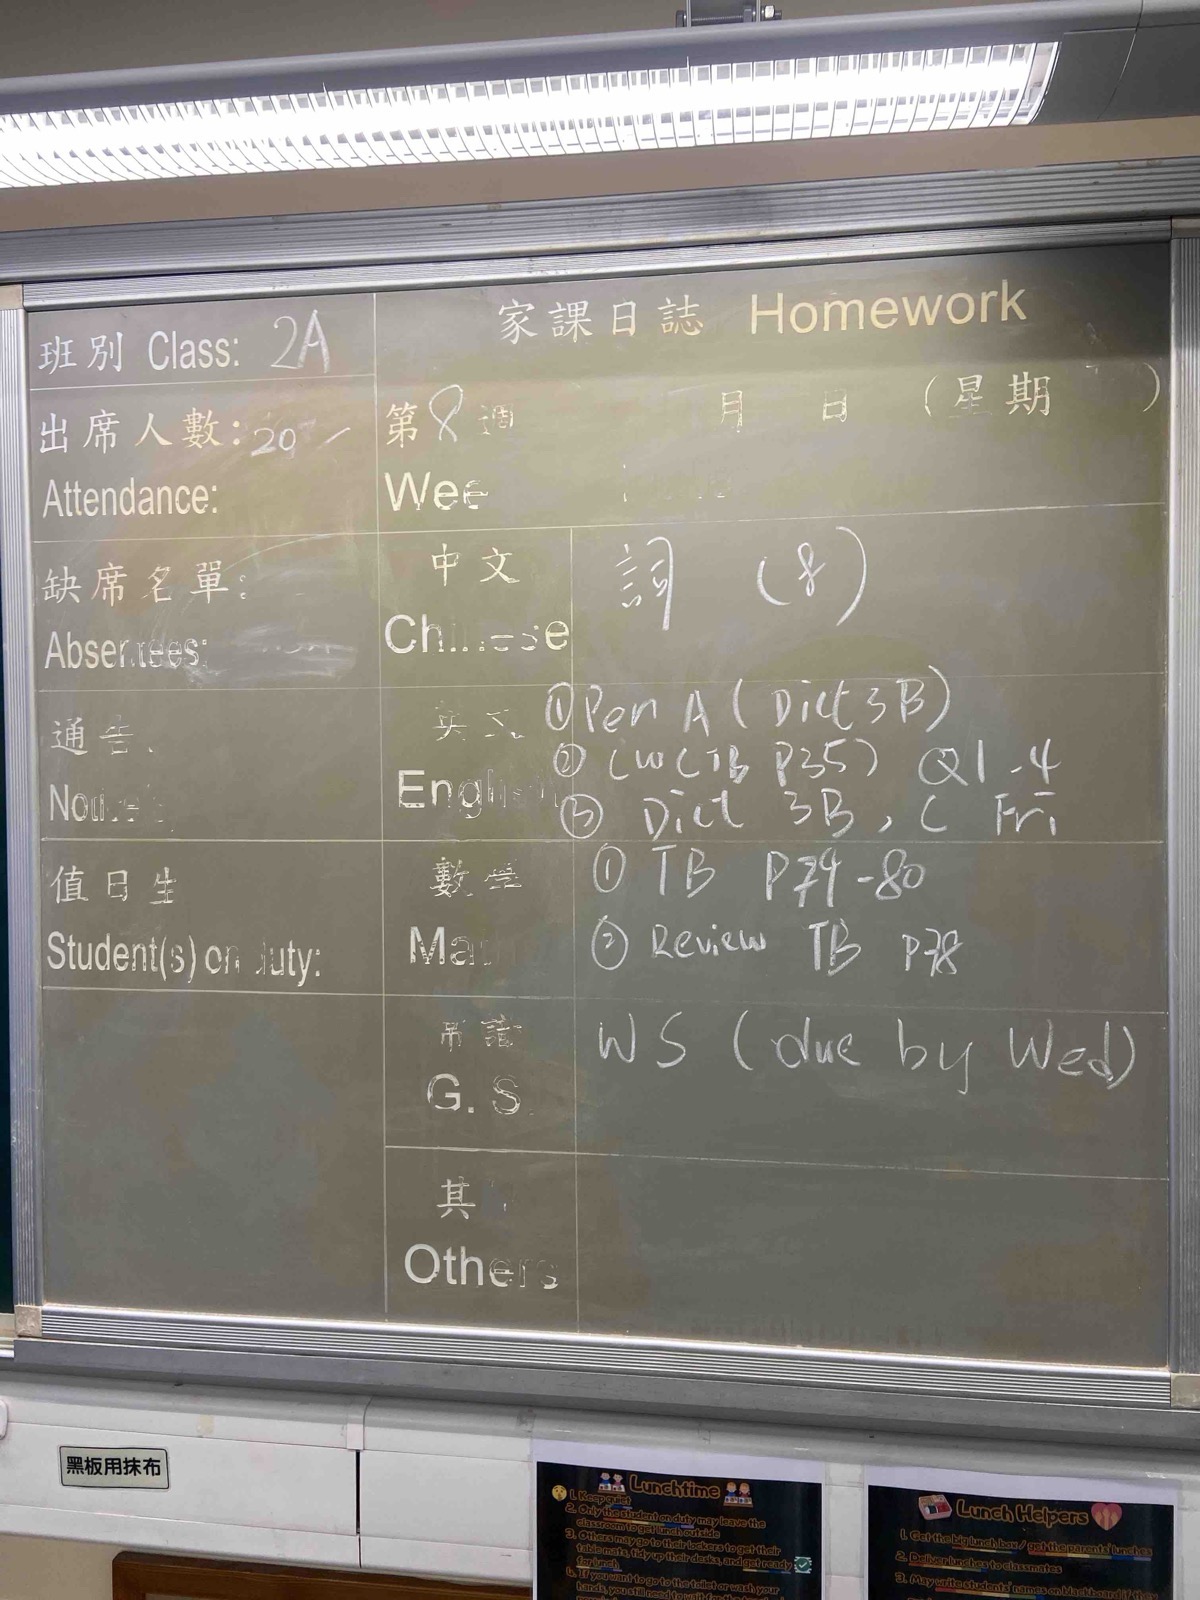 家課日誌 Homework
班別 Class: 2A
出席人數: 20
Attendance:
第8週 月 日 (星期 )
缺席名單:
Absentees:
中文
Chinese
詞 (8)
通告
英文
English
① Pen A (Dict 3B)
② CW (TB P35) Q1-4
Dict 3B, C Fri
值日生
Student(s) on duty:
數學
① TB P79-80
② Review TB P78
常識
G. S
WS (due by Wed)
其
Others
黑板用抹布
Lunchtime
1. Keep quiet
2. Only the student on duty may leave the
classroom to get lunch outside
3. Others may go to their lockers to get their
table mats, tidy up their desks, and get ready
for lunch
4. If you want to go to the toilet or wash your
hands, you still need to wait for the
Lunch Helpers
1. Get the big lunch box / get the parents' lunches
2. Deliver lunches to classmates
3. May write students' names on blackboard if they